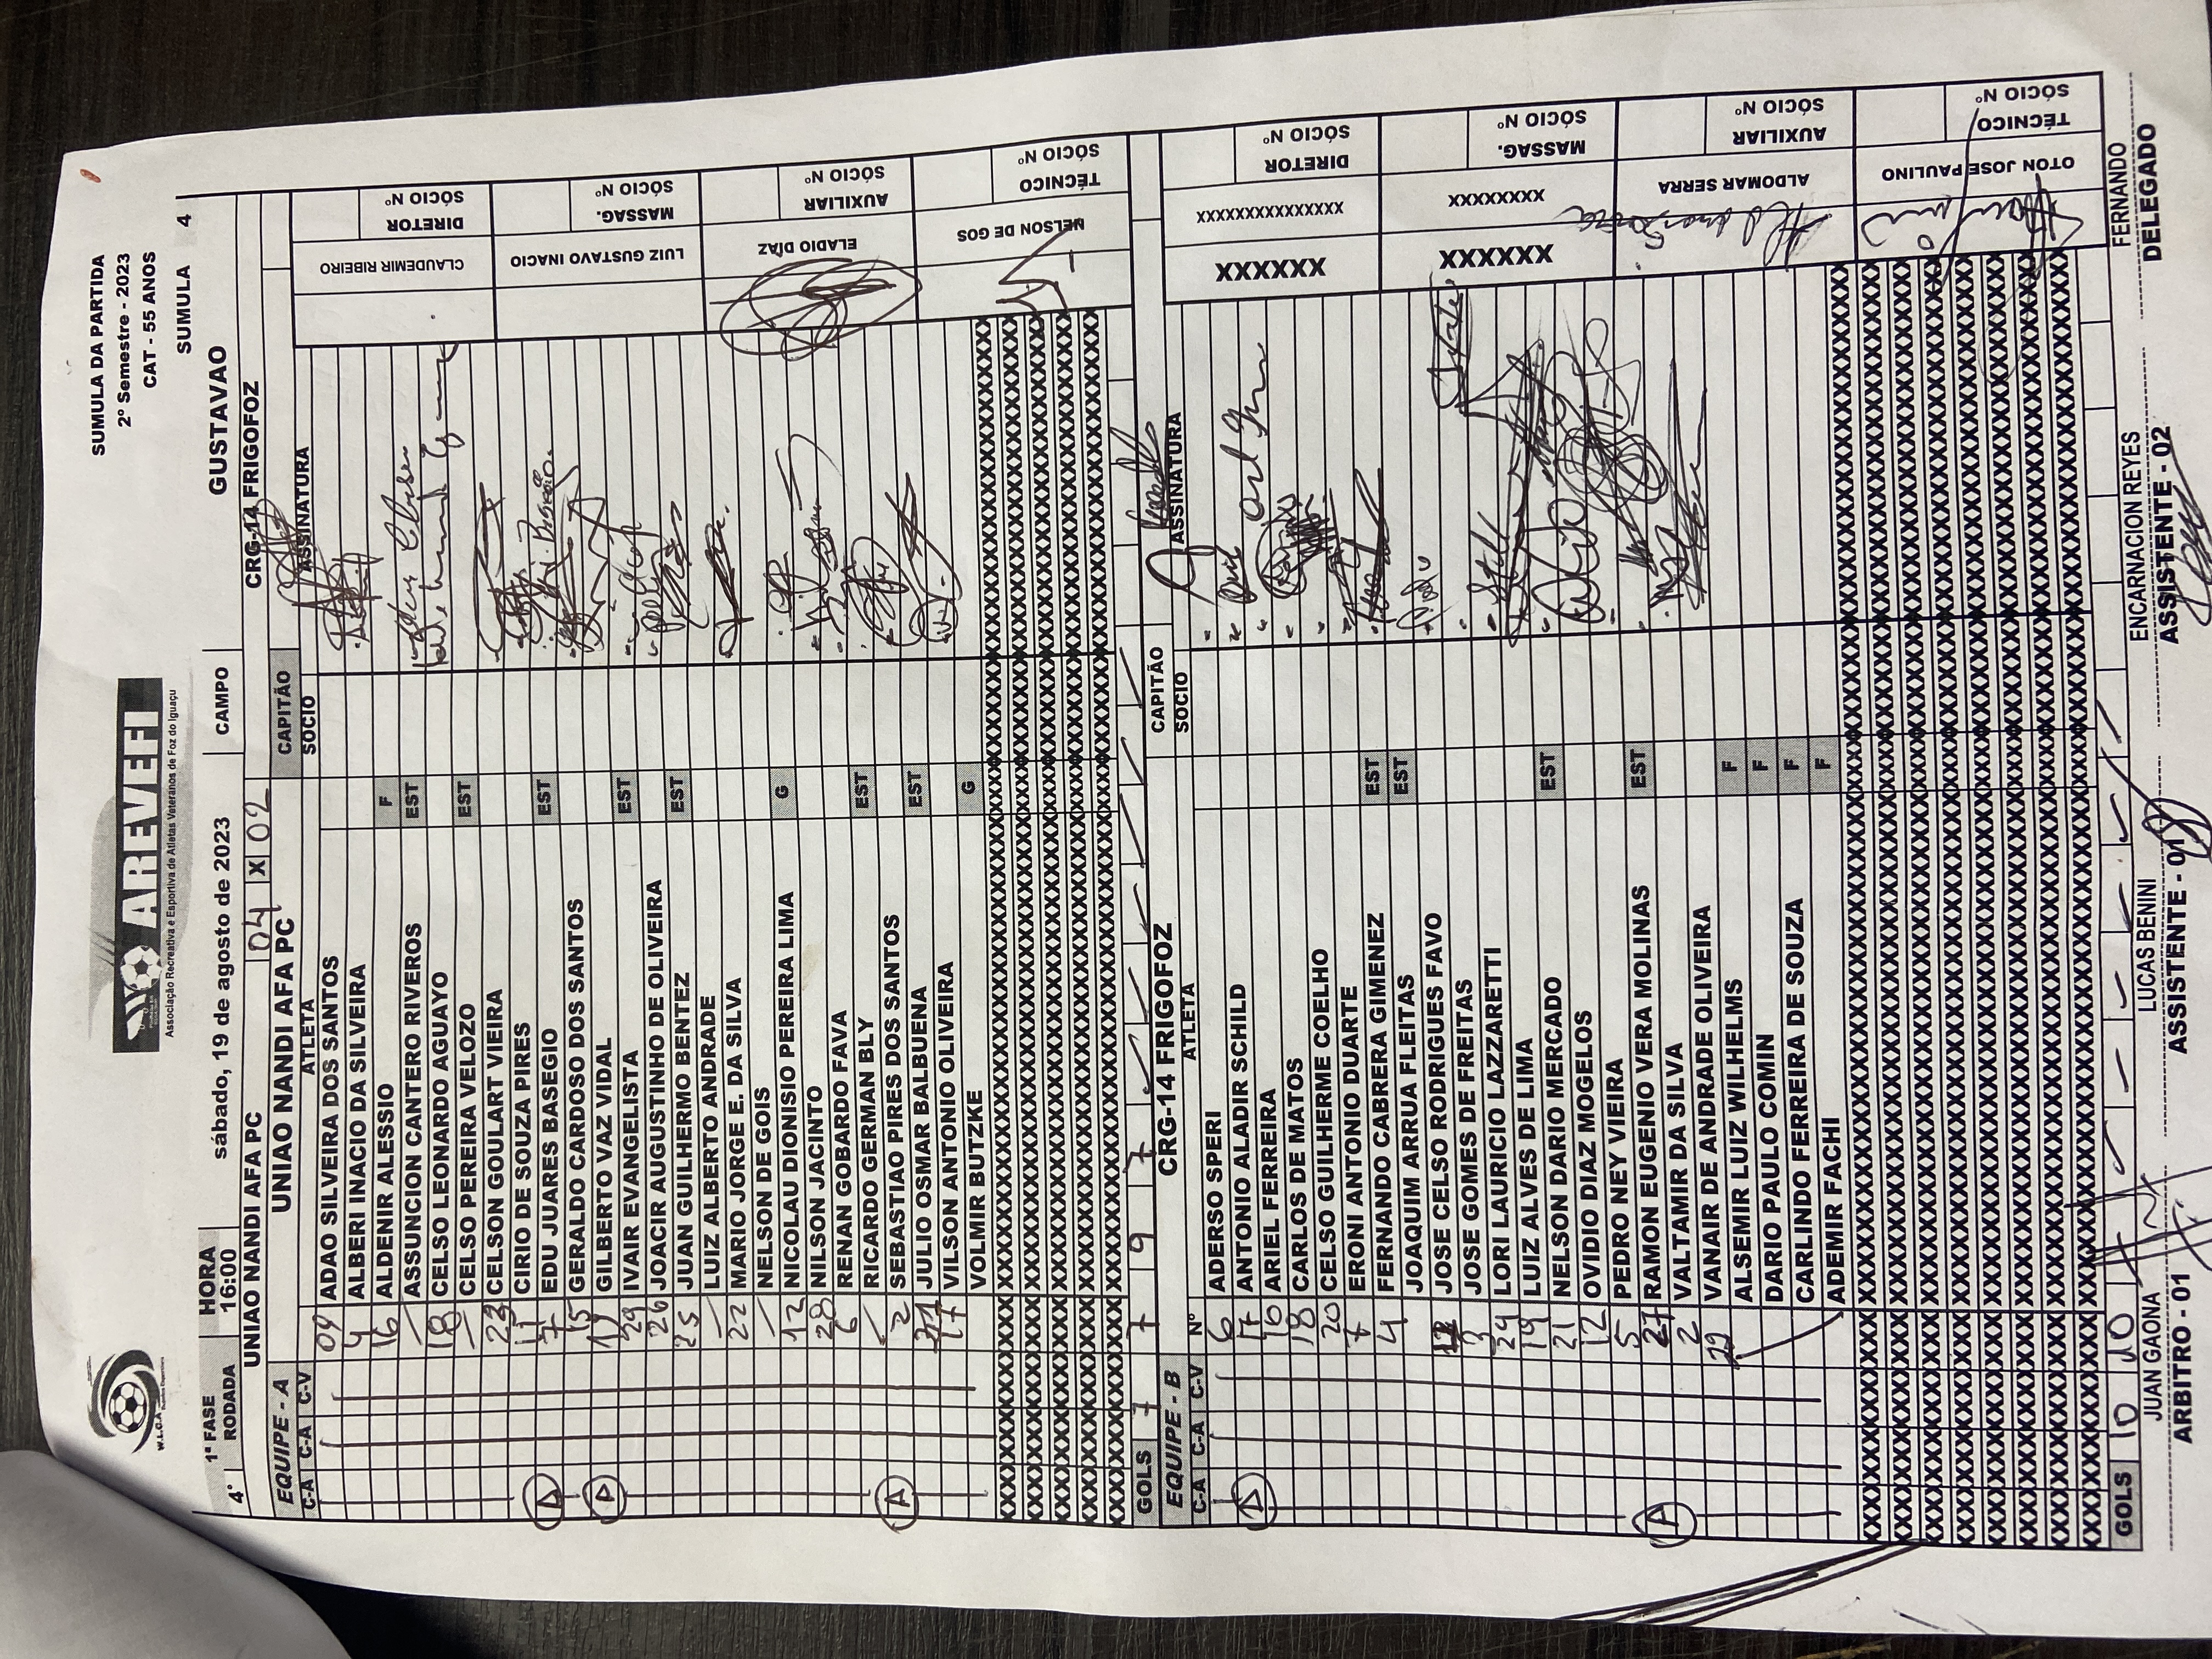 SUMULA DA PARTIDA
2º Semestre - 2023
CAT - 55 ANOS
W.L.O.A.
AREVEFI
Associação Recreativa e Esportiva de Atletas Veteranos de Foz do Iguaçu
SUMULA 4
1ª FASE HORA sábado, 19 de agosto de 2023 CAMPO GUSTAVAO
4° RODADA 16:00
UNIAO NANDI AFA PC 04 X 02 CRG-14 FRIGOFOZ
EQUIPE - A UNIAO NANDI AFA PC CAPITÃO
C-A C-A C-V ATLETA SOCIO ASSINATURA
09 ADAO SILVEIRA DOS SANTOS
4 ALBERI INACIO DA SILVEIRA
16 ALDENIR ALESSIO F
ASSUNCION CANTERO RIVEROS EST
18 CELSO LEONARDO AGUAYO
CELSO PEREIRA VELOZO EST
23 CELSON GOULART VIEIRA
11 CIRIO DE SOUZA PIRES
A 7 EDU JUARES BASEGIO EST
15 GERALDO CARDOSO DOS SANTOS
A 19 GILBERTO VAZ VIDAL
29 IVAIR EVANGELISTA EST
26 JOACIR AUGUSTINHO DE OLIVEIRA
25 JUAN GUILHERMO BENTEZ EST
LUIZ ALBERTO ANDRADE
22 MARIO JORGE E. DA SILVA
NELSON DE GOIS
12 NICOLAU DIONISIO PEREIRA LIMA G
28 NILSON JACINTO
6 RENAN GOBARDO FAVA
RICARDO GERMAN BLY EST
A 2 SEBASTIAO PIRES DOS SANTOS
JULIO OSMAR BALBUENA EST
17 VILSON ANTONIO OLIVEIRA
VOLMIR BUTZKE G
CLAUDEMIR RIBEIRO DIRETOR SÓCIO Nº
LUIZ GUSTAVO INACIO MASSAG. SÓCIO Nº
ELADIO DÍAZ AUXILIAR SÓCIO Nº
NELSON DE GOS TÉCNICO SÓCIO Nº
GOLS 7 7 9 7
EQUIPE - B CRG-14 FRIGOFOZ CAPITÃO
C-A C-A C-V Nº ATLETA SOCIO ASSINATURA
6 ADERSO SPERI
A 17 ANTONIO ALADIR SCHILD
16 ARIEL FERREIRA
18 CARLOS DE MATOS
20 CELSO GUILHERME COELHO
7 ERONI ANTONIO DUARTE
4 FERNANDO CABRERA GIMENEZ EST
JOAQUIM ARRUA FLEITAS EST
JOSE CELSO RODRIGUES FAVO
3 JOSE GOMES DE FREITAS
24 LORI LAURICIO LAZZARETTI
19 LUIZ ALVES DE LIMA
21 NELSON DARIO MERCADO EST
12 OVIDIO DIAZ MOGELOS
5 PEDRO NEY VIEIRA
A 27 RAMON EUGENIO VERA MOLINAS EST
2 VALTAMIR DA SILVA
VANAIR DE ANDRADE OLIVEIRA
ALSEMIR LUIZ WILHELMS F
DARIO PAULO COMIN F
CARLINDO FERREIRA DE SOUZA F
ADEMIR FACHI F
XXXXXX XXXXXXXXXXXXXXX DIRETOR SÓCIO Nº
XXXXXX XXXXXXXX MASSAG. SÓCIO Nº
ALDOMAR SERRA AUXILIAR SÓCIO Nº
OTON JOSE PAULINO TÉCNICO SÓCIO Nº
GOLS 10 10
JUAN GAONA LUCAS BENINI ENCARNACION REYES FERNANDO
ARBITRO - 01 ASSISTENTE - 01 ASSISTENTE - 02 DELEGADO